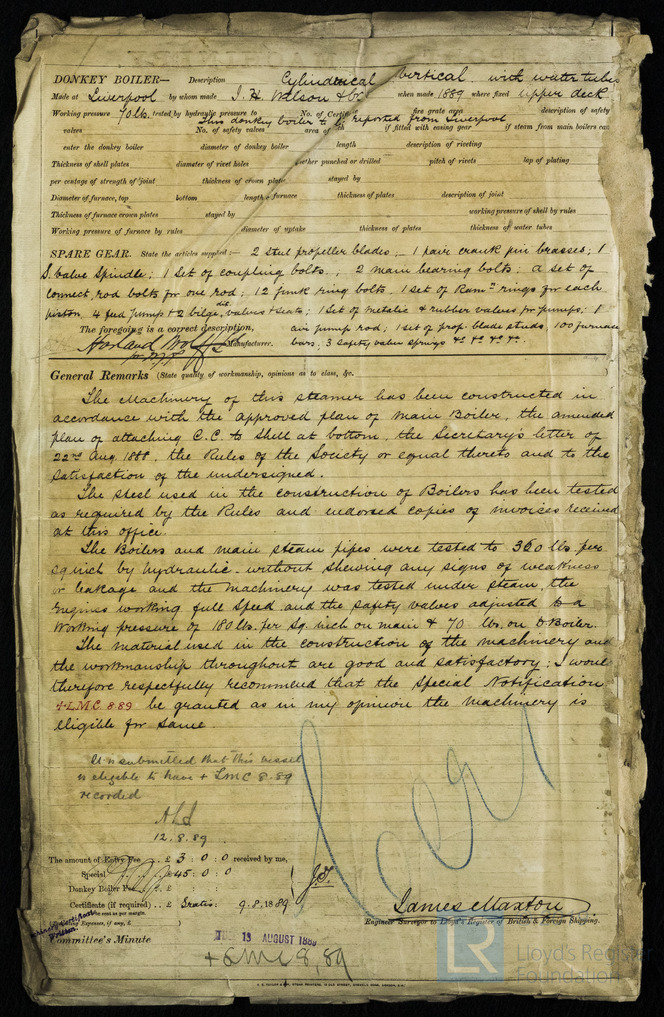 DONKEY BOILER— Description Cylindrical Vertical with water tubes
Made at Liverpool by whom made J. H. Wilson & Co when made 1889 where fixed upper deck
Working pressure 70 lb. tested by hydraulic pressure to No. of Certificate fire grate area description of safety
This donkey boiler to be reported from Liverpool
valves No. of safety valves area of each if fitted with easing gear if steam from main boilers can
enter the donkey boiler diameter of donkey boiler length description of riveting
Thickness of shell plates diameter of rivet holes whether punched or drilled pitch of rivets lap of plating
per centage of strength of joint thickness of crown plate stayed by
Diameter of furnace, top bottom length of furnace thickness of plates description of joint
Thickness of furnace crown plates stayed by working pressure of shell by rules
Working pressure of furnace by rules diameter of uptake thickness of plates thickness of water tubes
SPARE GEAR. State the articles supplied:— 2 steel propeller blades, 1 pair crank pin brasses; 1
S. Valve Spindle; 1 set of coupling bolts, 2 main bearing bolts; a set of
connect. rod bolts for one rod; 12 junk ring bolts, 1 set of Rams rings for each
piston, 4 feed pump & 2 bilge do valves & seats; 1 Set of metallic & rubber valves for pumps; 1
The foregoing is a correct description, air pump rod; 1 set of prop. blade studs, 100 furnace
Harland Wolff Manufacturer. bars, 3 safety valve springs &c &c &c &c.
General Remarks (State quality of workmanship, opinions as to class, &c.
The Machinery of this steamer has been constructed in
accordance with the approved plan of Main Boiler, the amended
plan of attaching C.C. to Shell at bottom, the Secretary's letter of
22nd Aug. 1888, the Rules of the Society or equal thereto and to the
satisfaction of the undersigned.
The steel used in the construction of Boilers has been tested
as required by the Rules and endorsed copies of invoices received
at this office.
The Boilers and main steam pipes were tested to 360 lbs per
sq inch by hydraulic without shewing any signs of weakness
or leakage and the machinery was tested under steam, the
Engines working full speed and the safety valves adjusted to a
working pressure of 180 lbs. per sq. inch on main & 70 lbs. on D Boiler.
The material used in the construction of the machinery and
the workmanship throughout are good and satisfactory; I would
therefore respectfully recommend that the Special Notification
+ LMC 8.89 be granted as in my opinion the machinery is
eligible for same.
It is submitted that this vessel
is eligible to have + LMC 8.89
recorded
12.8.89
The amount of Entry Fee .. £ 3 : 0 : 0 received by me,
Special .. £ 45 : 0 : 0
Donkey Boiler Fee .. £
Certificate (if required) .. £ Gratis : 9.8.1889
to be sent as per margin.
Expenses, if any, £
James Maxton
Engineer Surveyor to Lloyd's Register of British & Foreign Shipping.
Committee's Minute
TUES 13 AUGUST 1889
+ LMC 8,89
Lloyd's Register
Foundation